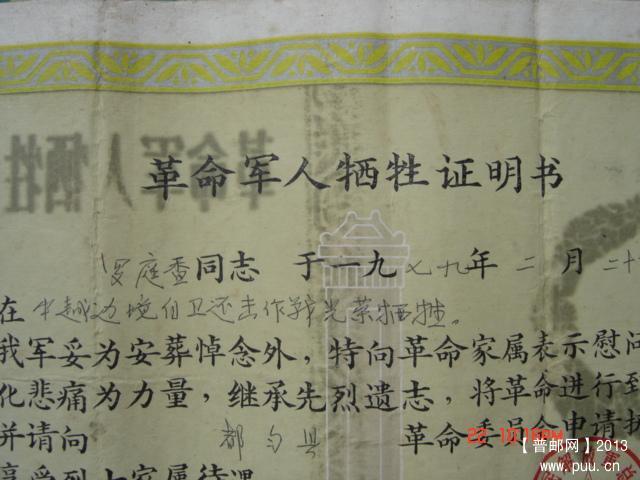 革命军人牺牲证明书
罗庭香同志 于一九七九年二月二十
在中越边境自卫还击作战光荣牺牲。
我军妥为安葬悼念外，特向革命家属表示慰问
化悲痛为力量，继承先烈遗志，将革命进行到
并请向 都匀县 革命委员会申请
享受烈士家属待遇
22 10
【普邮网】2013
www.puu.cn